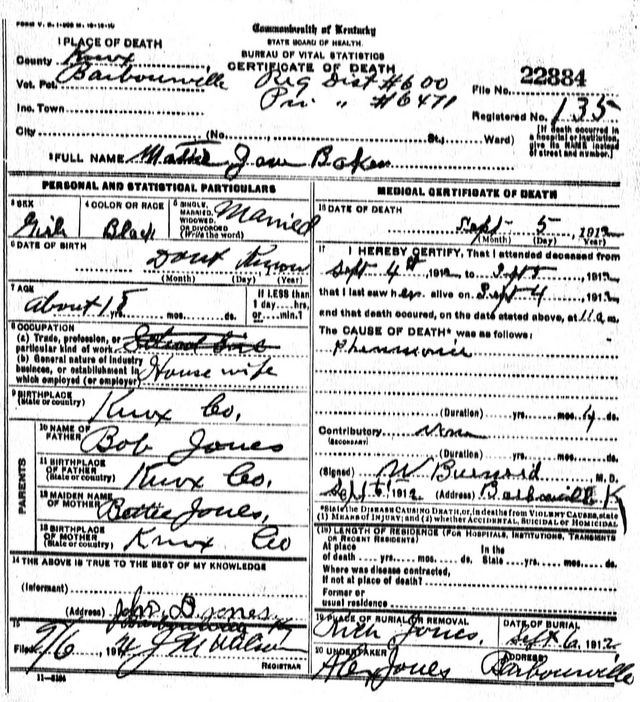 FORM V. S. 1-
Commonwealth of Kentucky
STATE BOARD OF HEALTH.
BUREAU OF VITAL STATISTICS
CERTIFICATE OF DEATH
1 PLACE OF DEATH
County Knox
Vot. Pct. Barbourville
Reg Dist #600
Pri " #6471
File No. 22884
Registered No. 135
Inc. Town
City (No. St.; Ward)
[If death occurred in a hospital or institution, give its NAME instead of street and number.]
2 FULL NAME Mattie Jane Baker
PERSONAL AND STATISTICAL PARTICULARS
3 SEX Girl
4 COLOR OR RACE Black
5 SINGLE, MARRIED, WIDOWED, OR DIVORCED (Write the word) Married
6 DATE OF BIRTH Dont Know
(Month) (Day) (Year)
7 AGE About 18 yrs. mos. ds.
If LESS than 1 day hrs. or min.?
8 OCCUPATION
(a) Trade, profession, or particular kind of work School Girl
(b) General nature of industry business, or establishment in which employed (or employer) House wife
9 BIRTHPLACE (State or country) Knox Co,
PARENTS
10 NAME OF FATHER Bob Jones
11 BIRTHPLACE OF FATHER (State or country) Knox Co.
12 MAIDEN NAME OF MOTHER Bettie Jones,
13 BIRTHPLACE OF MOTHER (State or country) Knox Co
14 THE ABOVE IS TRUE TO THE BEST OF MY KNOWLEDGE
(Informant)
(Address) Jones.
15
Filed 9/6 191
REGISTRAR
11-
MEDICAL CERTIFICATE OF DEATH
16 DATE OF DEATH Sept 5 1912
(Month) (Day) Year
17 I HEREBY CERTIFY, That I attended deceased from
Sept 4th 1912 to Sept 5, 1912
that I last saw her alive on Sept 4, 1912
and that death occured, on the date stated above, at 11 a.m.
The CAUSE OF DEATH* was as follows:
(Duration) yrs. mos. 4 ds.
Contributory
(SECONDARY)
(Duration) yrs. mos. ds.
(Signed) W Burnard M. D.
Sept 6 1912 (Address)
*State the DISEASE CAUSING DEATH, or, in deaths from VIOLENT CAUSES, state
(1) MEANS OF INJURY; and (2) whether ACCIDENTAL, SUICIDAL or HOMICIDAL
(18) LENGTH OF RESIDENCE (FOR HOSPITALS, INSTITUTIONS, TRANSIENTS OR RECENT RESIDENTS)
At place of death yrs. mos. ds. In the State yrs. mos. ds.
Where was disease contracted,
If not at place of death?
Former or
usual residence
19 PLACE OF BURIAL OR REMOVAL Jones,
DATE OF BURIAL Sept 6, 1912
20 UNDERTAKER Alex Jones
ADDRESS Barbourville